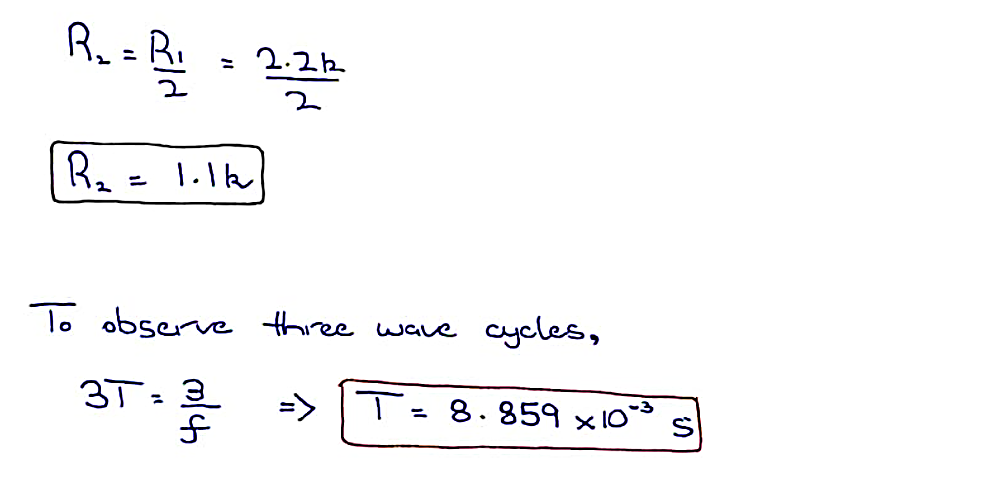 R₂ = R₁/2 = 2.2k/2
R₂ = 1.1k
To observe three wave cycles,
3T = 3/f => T = 8.859 ×10⁻³ s